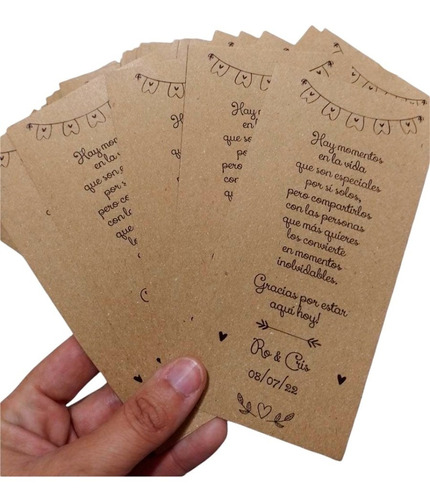 Hay momentos
en la vida
que son especiales
por sí solos,
pero compartirlos
con las personas
que más quieres
los convierte
en momentos
inolvidables.
Gracias por estar
aquí hoy!
Ro & Cris
08/07/22
Hay
en
que so
pe
con
qu
Hay mo
en la v
que son e
por s
pero co
con lo
que